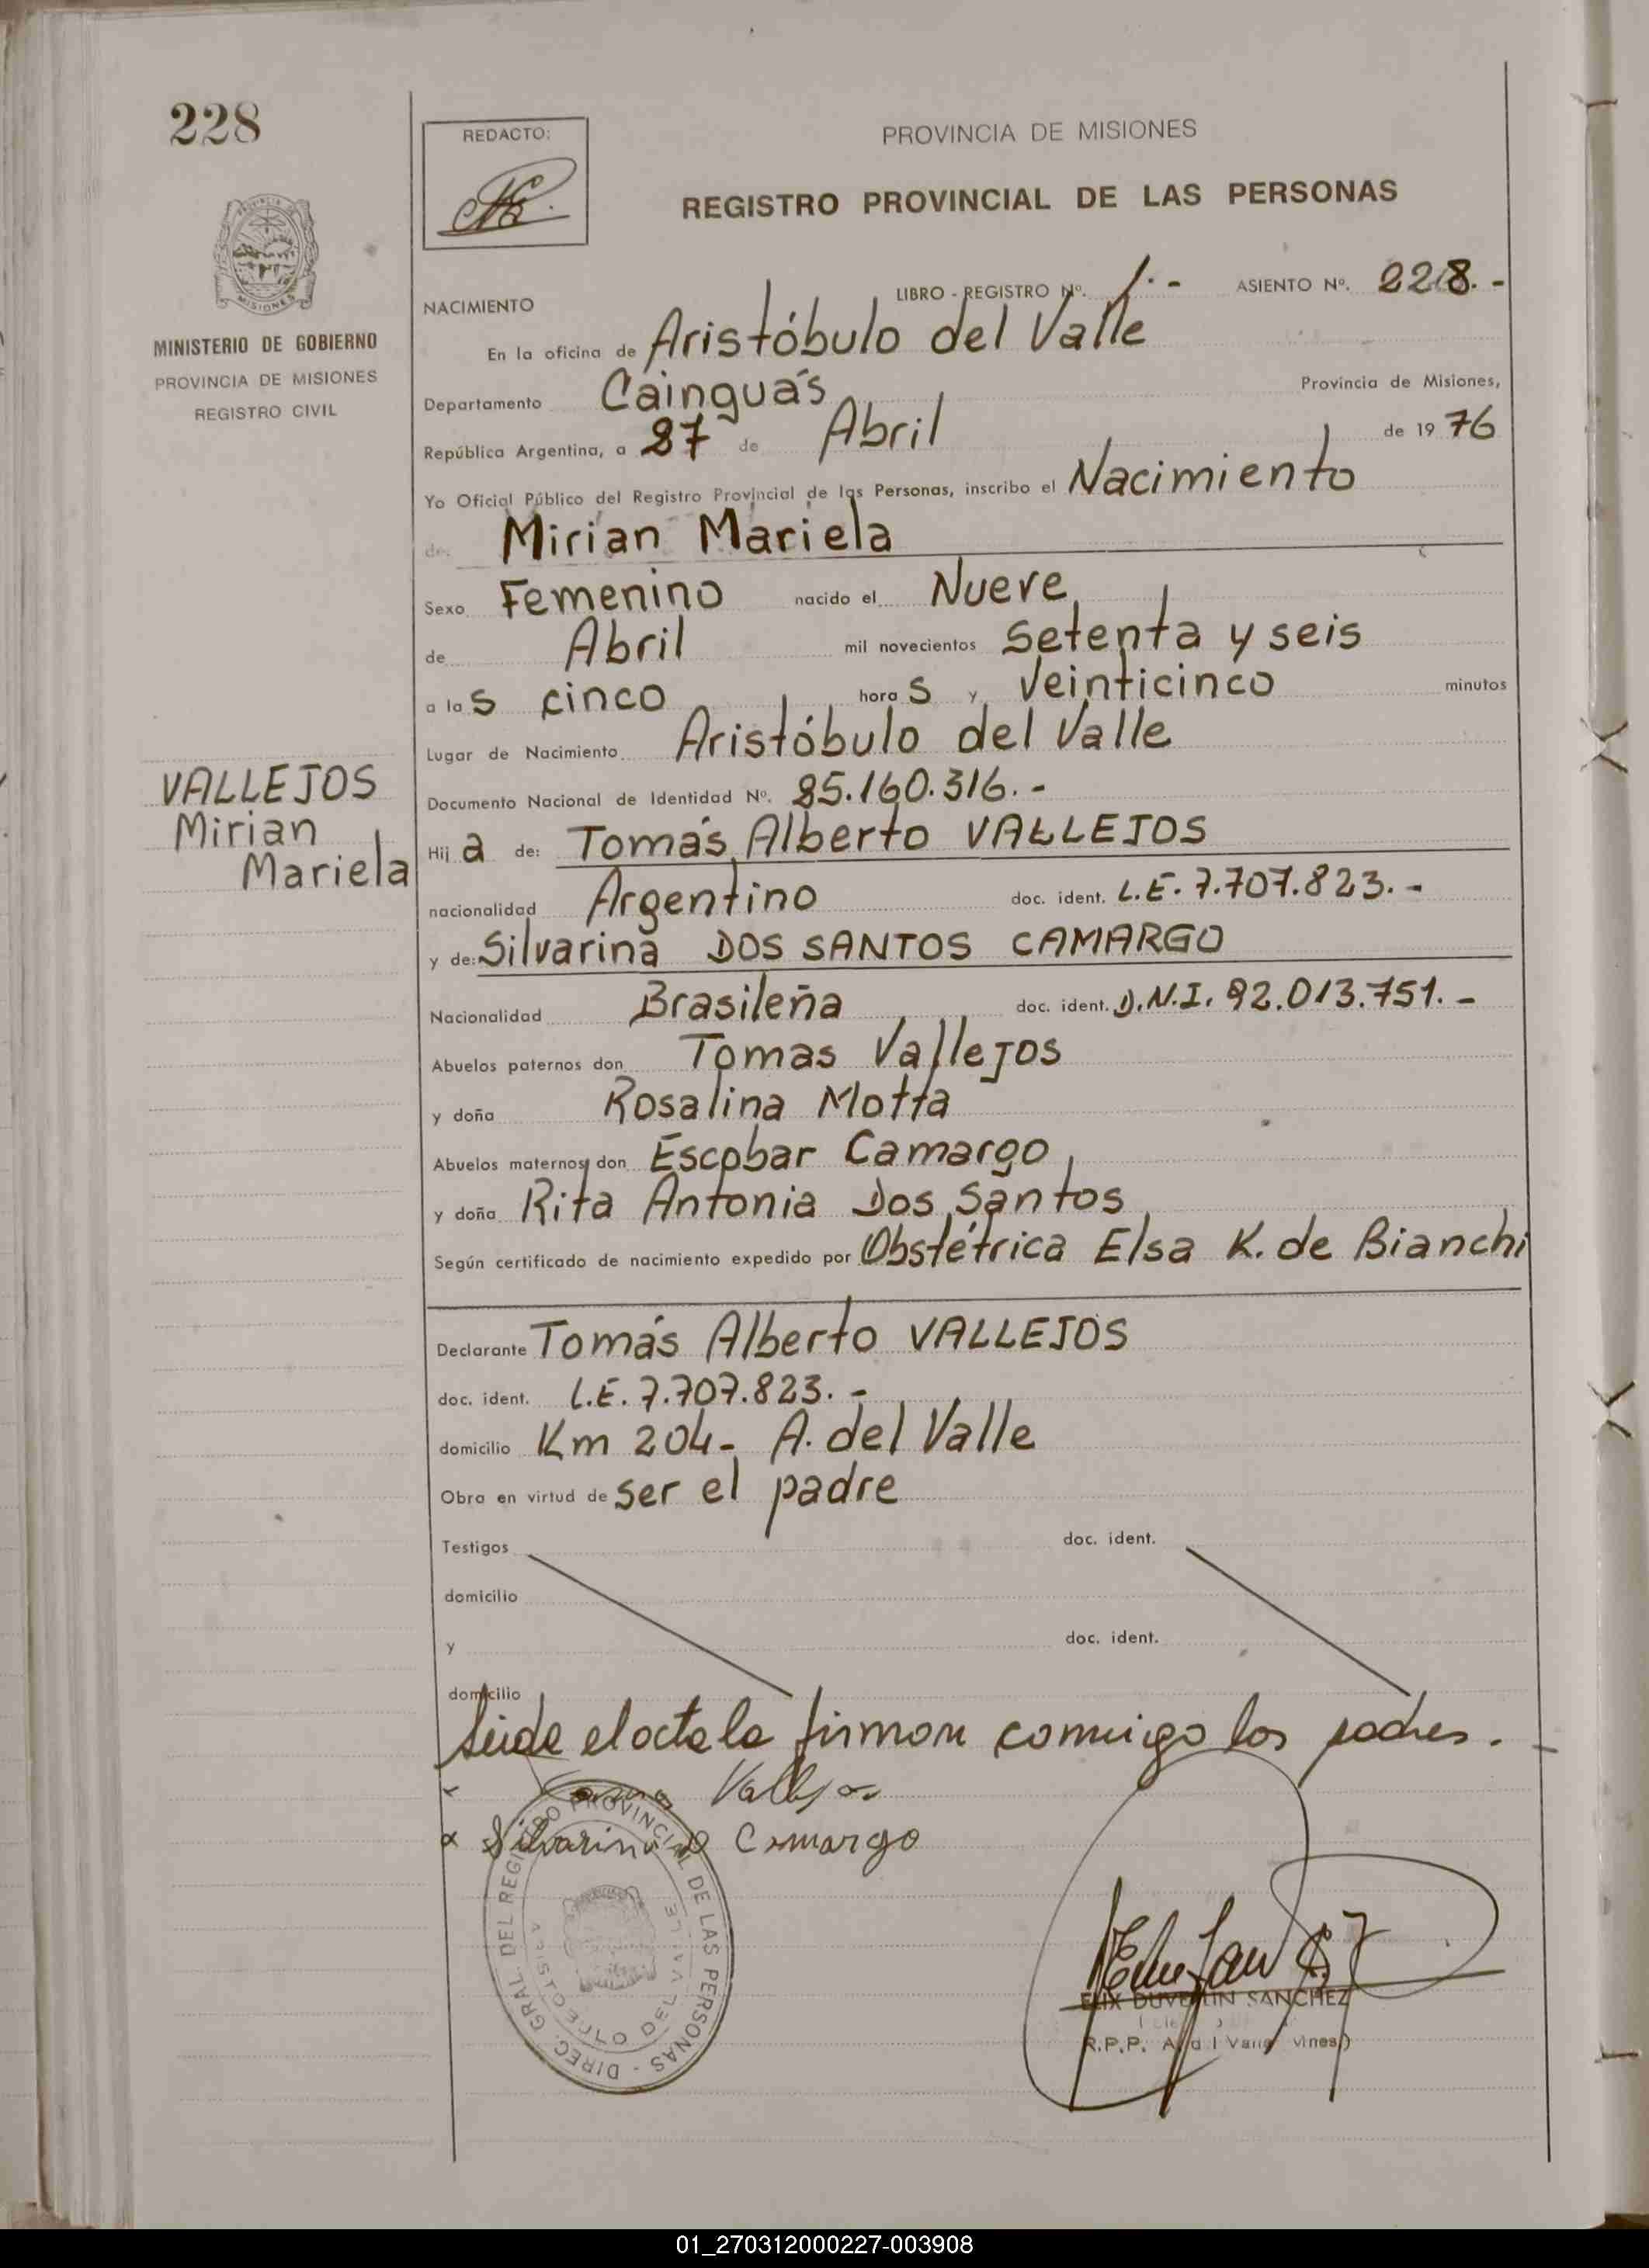 228
REDACTO:
PROVINCIA DE MISIONES
REGISTRO PROVINCIAL DE LAS PERSONAS
MISIONES
MINISTERIO DE GOBIERNO
PROVINCIA DE MISIONES
REGISTRO CIVIL
NACIMIENTO LIBRO - REGISTRO Nº. 1.- ASIENTO Nº. 228.-
En la oficina de Aristóbulo del Valle
Departamento Cainguás Provincia de Misiones,
República Argentina, a 27 de Abril de 1976
Yo Oficial Público del Registro Provincial de las Personas, inscribo el Nacimiento
de: Mirian Mariela
Sexo Femenino nacido el Nueve
de Abril mil novecientos setenta y seis
a las cinco horas y veinticinco minutos
Lugar de Nacimiento Aristóbulo del Valle
VALLEJOS
Mirian
Mariela
Documento Nacional de Identidad Nº. 25.160.316.-
Hija de: Tomás Alberto VALLEJOS
nacionalidad Argentino doc. ident. L.E. 7.707.823.-
y de: Silvarina DOS SANTOS CAMARGO
Nacionalidad Brasileña doc. ident. D.N.I. 92.013.751.-
Abuelos paternos don Tomas Vallejos
y doña Rosalina Motta
Abuelos maternos don Escobar Camargo
y doña Rita Antonia Dos Santos
Según certificado de nacimiento expedido por Obstétrica Elsa K. de Bianchi
Declarante Tomás Alberto VALLEJOS
doc. ident. L.E. 7.707.823.-
domicilio Km 204- A. del Valle
Obra en virtud de ser el padre
Testigos doc. ident.
domicilio
y doc. ident.
domicilio
Leída el acta la firman conmigo los padres.-
Vallejos
Silvarina D Camargo
DIREC. GRAL. DEL REGISTRO PROVINCIAL DE LAS PERSONAS -
ARISTOBULO DEL VALLE
DUVERLIN SANCHEZ
R.P.P.
01_270312000227-003908